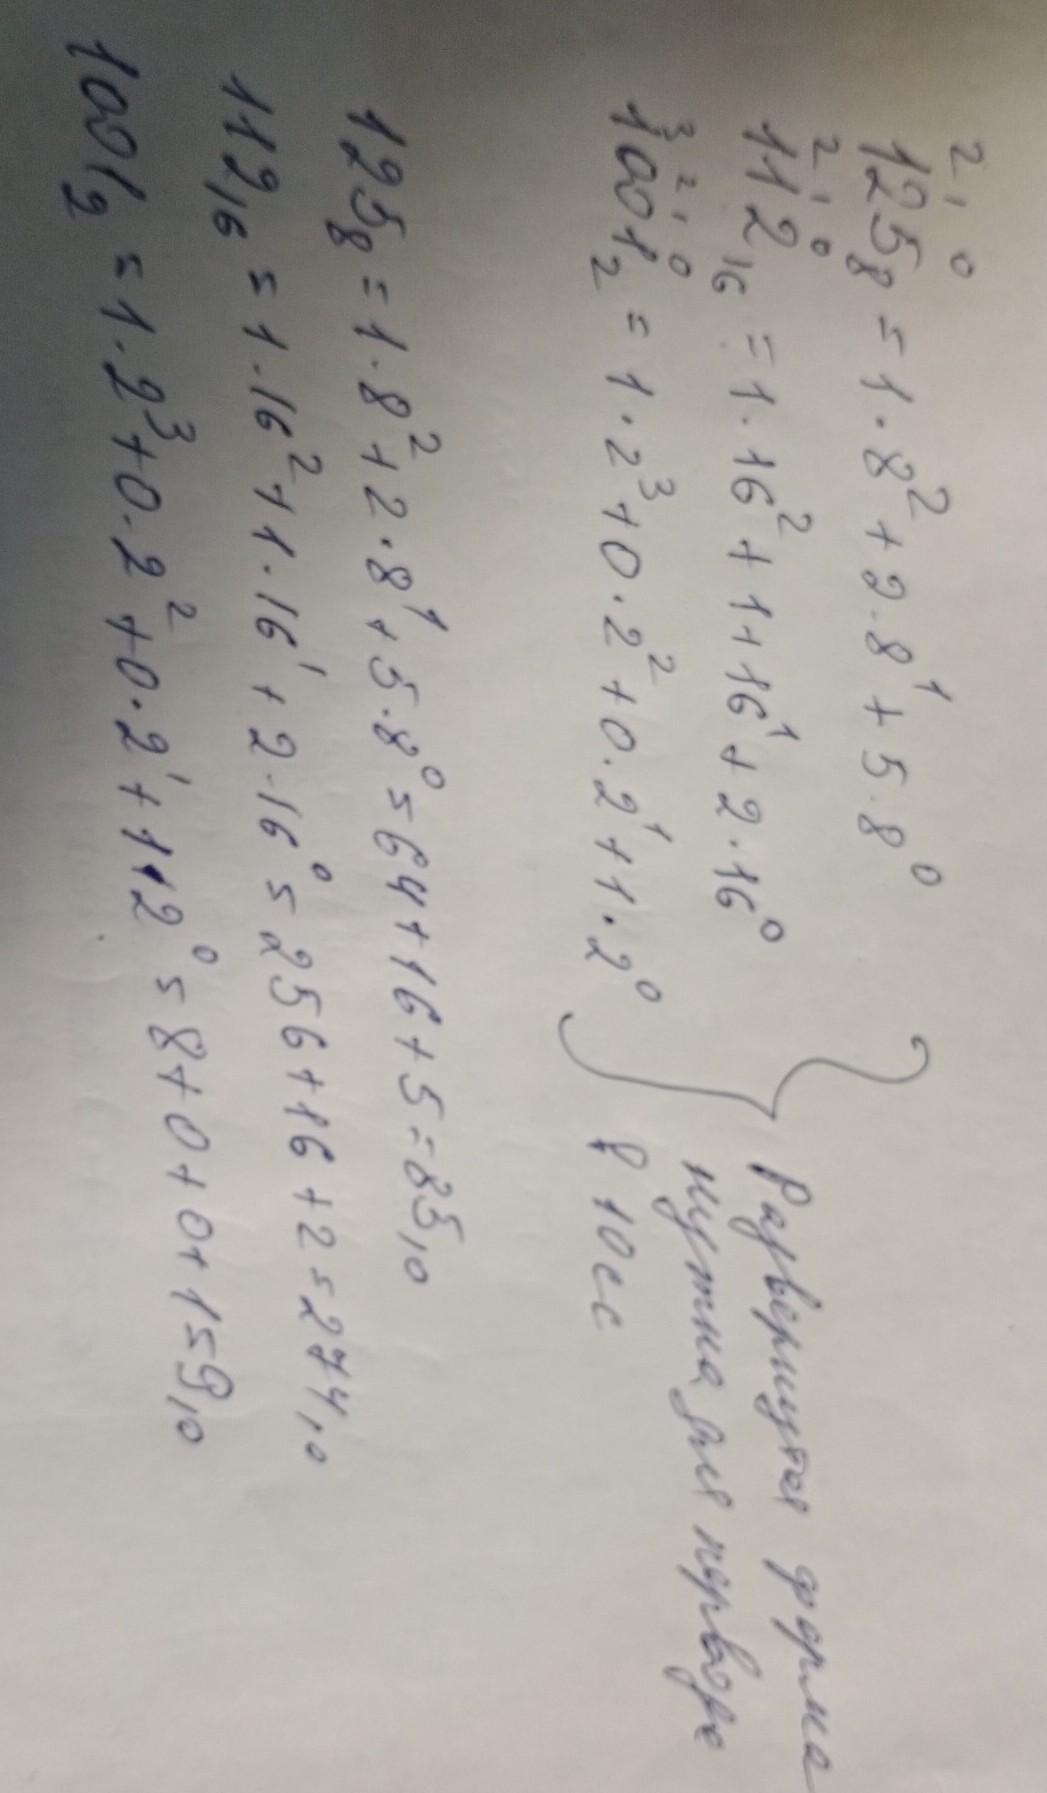 2 1 0
125₈ = 1·8² + 2·8¹ + 5·8⁰
2 1 0
112₁₆ = 1·16² + 1+16¹ + 2·16⁰
3 2 1 0
1001₂ = 1·2³ + 0·2² + 0·2¹ + 1·2⁰
Развернутая форма
нужна для перевода
в 10сс
125₈ = 1·8² + 2·8¹ + 5·8⁰ = 64 + 16 + 5 = 85₁₀
112₁₆ = 1·16² + 1·16¹ + 2·16⁰ = 256 + 16 + 2 = 274₁₀
1001₂ = 1·2³ + 0·2² + 0·2¹ + 1·2⁰ = 8 + 0 + 0 + 1 = 9₁₀